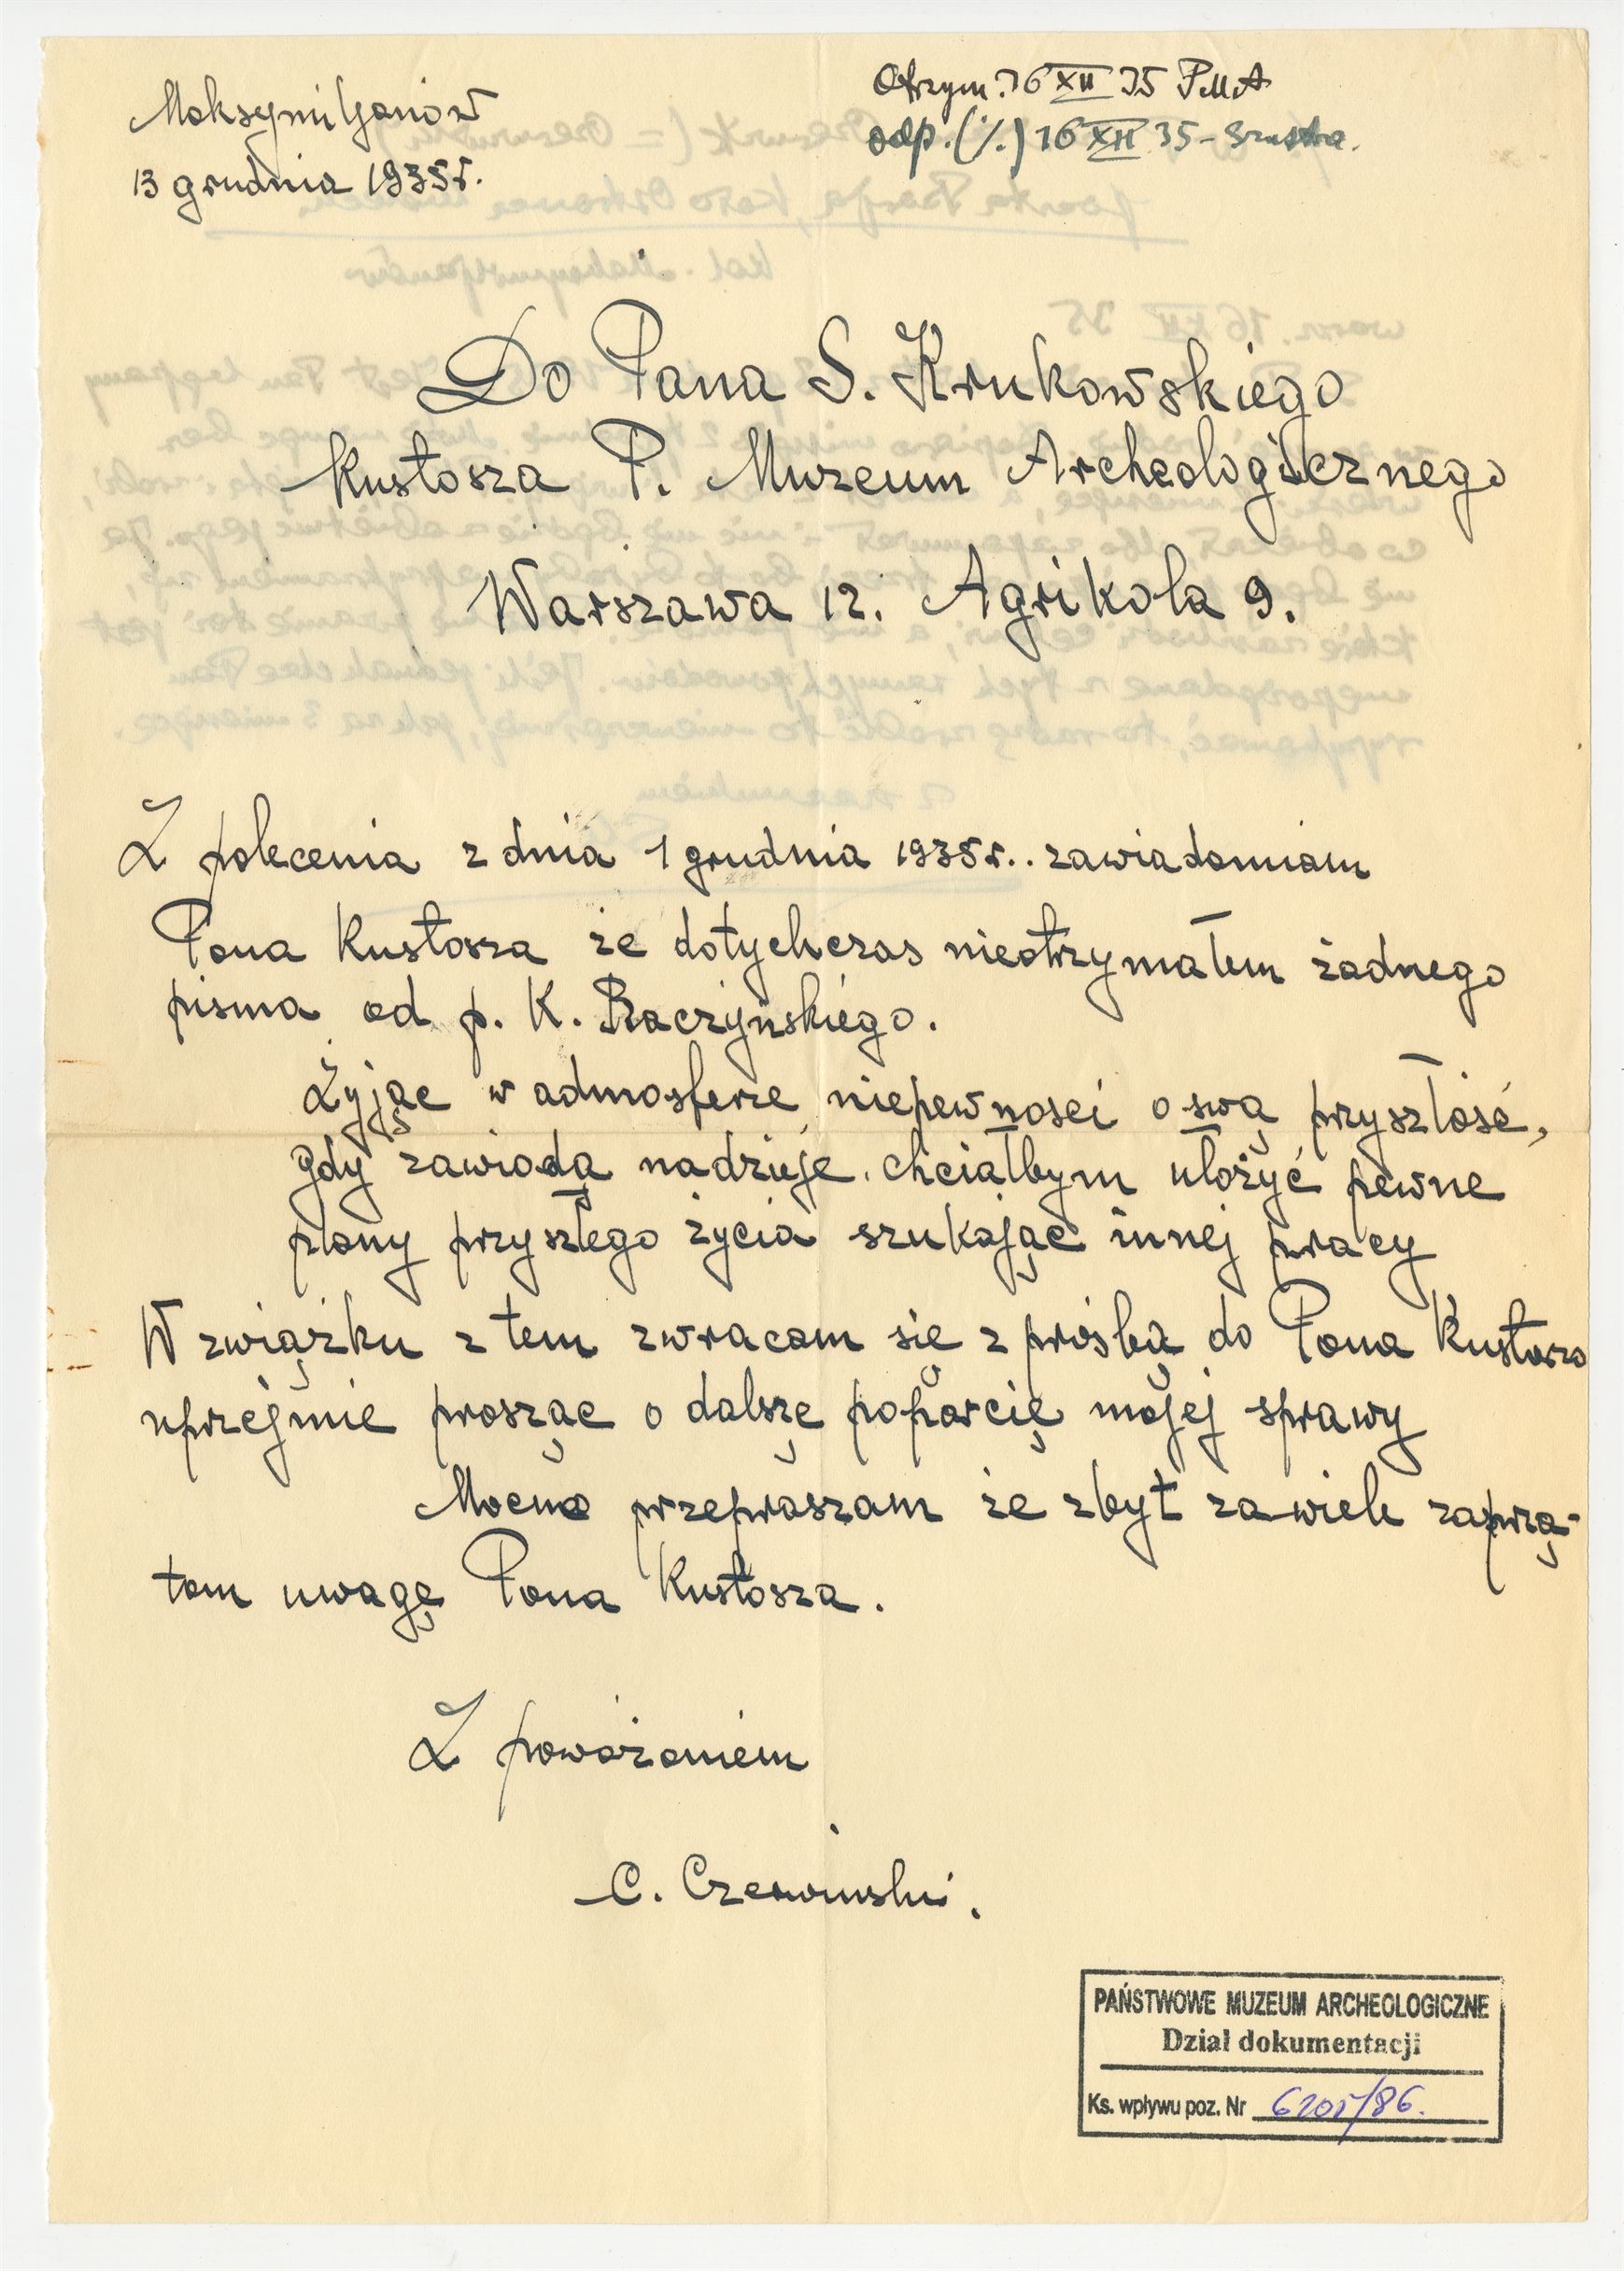 Maksymiljanów
13 grudnia 1935r.
Otrzym. 16 XII 35 PMA
odp. (%) 16 XII 35 -
Do Pana S. Krukowskiego
Kustosza P. Muzeum Archeologicznego
Warszawa 12. Agrikola 9.
Z polecenia z dnia 1 grudnia 1935r.. zawiadamiam
Pana Kustosza że dotychczas nieotrzymałem żadnego
pisma od p. K. Raczyńskiego.
Żyjąc w admosferze niepewnosci o swą przyszłość,
gdy zawiodą nadzieje. chciałbym ułożyć pewne
plany przyszłego życia szukając innej pracy
W związku z tem zwracam się z prośbą do Pana Kustosza
uprzejmie prosząc o dalszę poparcię mojej sprawy
Mocno przepraszam że zbyt zawiele zaprzą-
tam uwagę Pana Kustosza.
Z poważaniem
C. Czerwinski.
PAŃSTWOWE MUZEUM ARCHEOLOGICZNE
Dział dokumentacji
Ks. wpływu poz. Nr 6205/86.